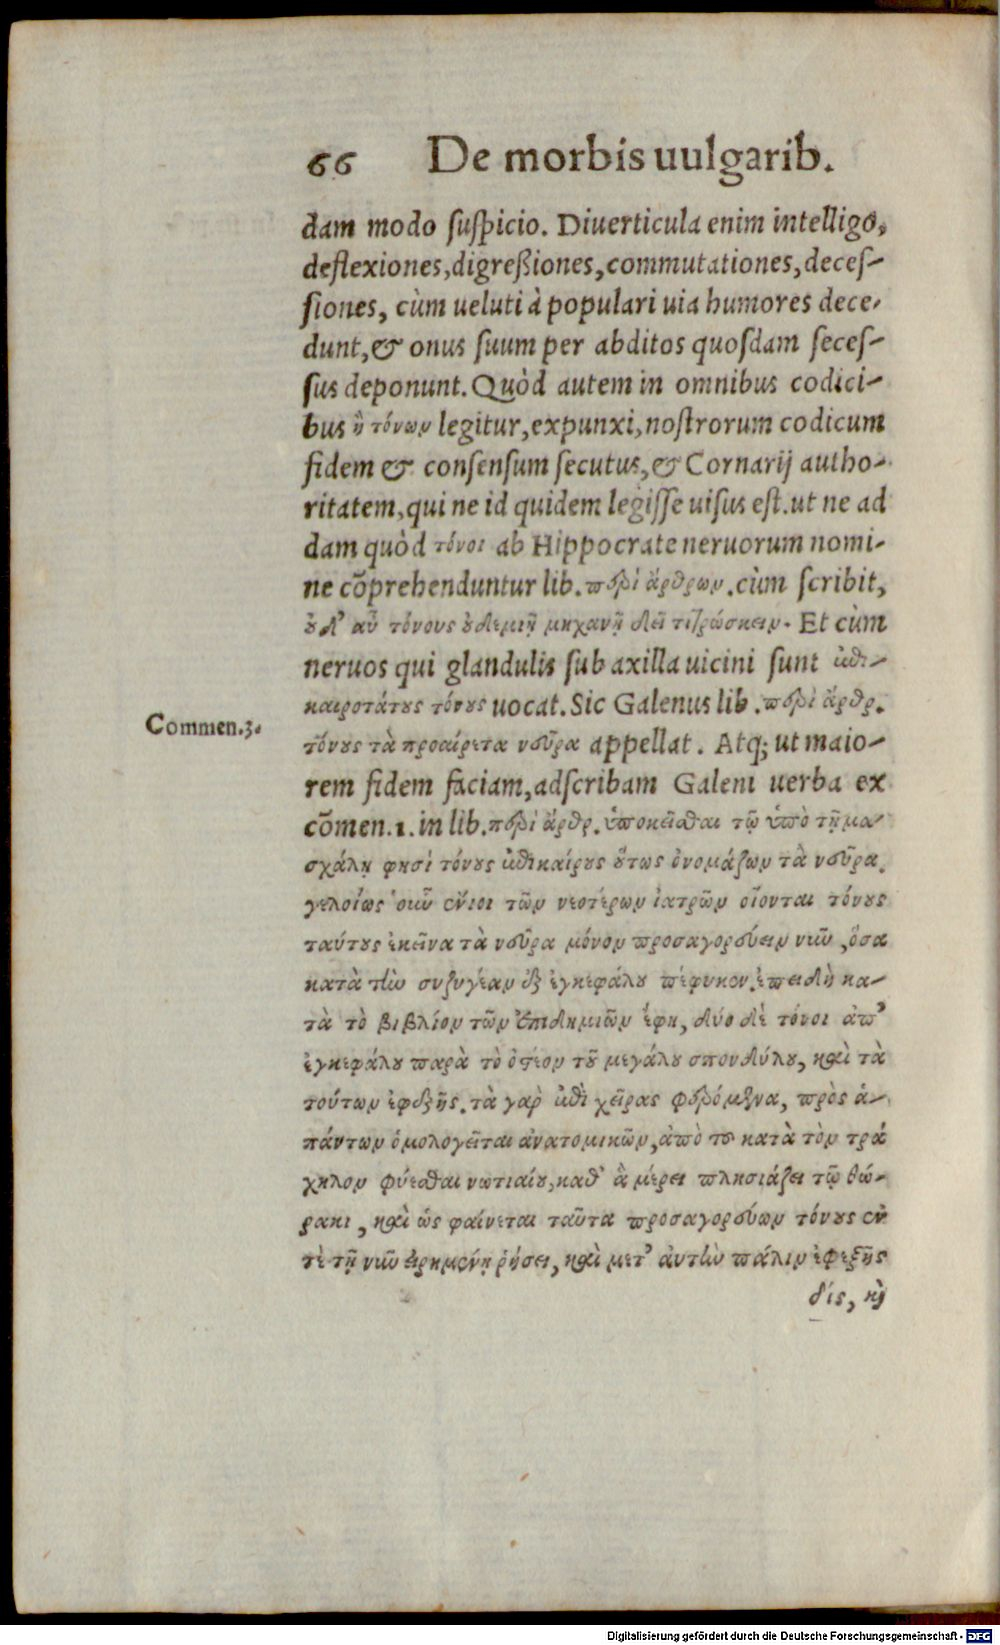 66 De morbis uulgarib.
dam modo suspicio. Diuerticula enim intelligo,
deflexiones, digreßiones, commutationes, deces-
siones, cùm ueluti à populari uia humores dece-
dunt, & onus suum per abditos quosdam seces-
sus deponunt. Quòd autem in omnibus codici-
bus ἢ τόνων legitur, expunxi, nostrorum codicum
fidem & consensum secutus, & Cornarij autho-
ritatem, qui ne id quidem legisse uisus est. ut ne ad
dam quòd τόνοι ab Hippocrate neruorum nomi-
ne cõprehenduntur lib. περὶ ἄρθρων. cùm scribit,
οὐδ' αὖ τόνους οὐδεμιῇ μηχανῇ δεῖ τιτρώσκειν. Et cùm
neruos qui glandulis sub axilla uicini sunt ἐπι-
καιροτάτους τόνους uocat. Sic Galenus lib. περὶ ἄρθρ.
Commen.3.
τόνους τὰ προαίρετα νεῦρα appellat. Atq; ut maio-
rem fidem faciam, adscribam Galeni uerba ex
cõmen. 1. in lib. περὶ ἄρθρ. ὑποκεῖσθαι τῷ ὑπὸ τῇ μα-
σχάλῃ φησὶ τόνους ἐπικαίρους οὕτως ὀνομάζων τὰ νεῦρα.
γελοίως οὖν ἔνιοι τῶν νεοτέρων ἰατρῶν οἴονται τόνους
ταύτους ἐκεῖνα τὰ νεῦρα μόνον προσαγορεύειν νιῦ, ὅσα
κατὰ τὴν συζυγίαν ἐξ ἐγκεφάλου πέφυκεν. ἐπειδὴ κα-
τὰ τὸ βιβλίον τῶν ἐπιδημιῶν ἔφη, δύο δὲ τόνοι ἀπ'
ἐγκεφάλου παρὰ τὸ ὀστέον τοῦ μεγάλου σπονδύλου, καὶ τὰ
τούτων ἐφεξῆς. τὰ γὰρ ἐπὶ χεῖρας φερόμενα, πρὸς ἁ-
πάντων ὁμολογεῖται ἀνατομικῶν, ἀπὸ τοῦ κατὰ τὸν τρά
χηλον φύεσθαι νωτιαίου, καθ' ἃ μέρει πλησιάζει τῷ θώ-
ρακι, καὶ ὡς φαίνεται ταῦτα προσαγορεύων τόνους ἔν
τε τῇ νῦν εἰρημένῃ ῥήσει, καὶ μετ' αὐτὴν πάλιν ἐφεξῆς
δίς, κỳ
Digitalisierung gefördert durch die Deutsche Forschungsgemeinschaft - DFG